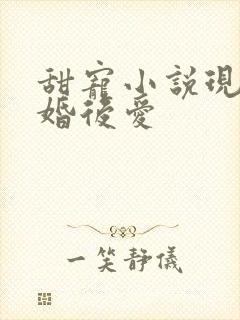 甜寵小說現
婚後愛
一笑靜儀